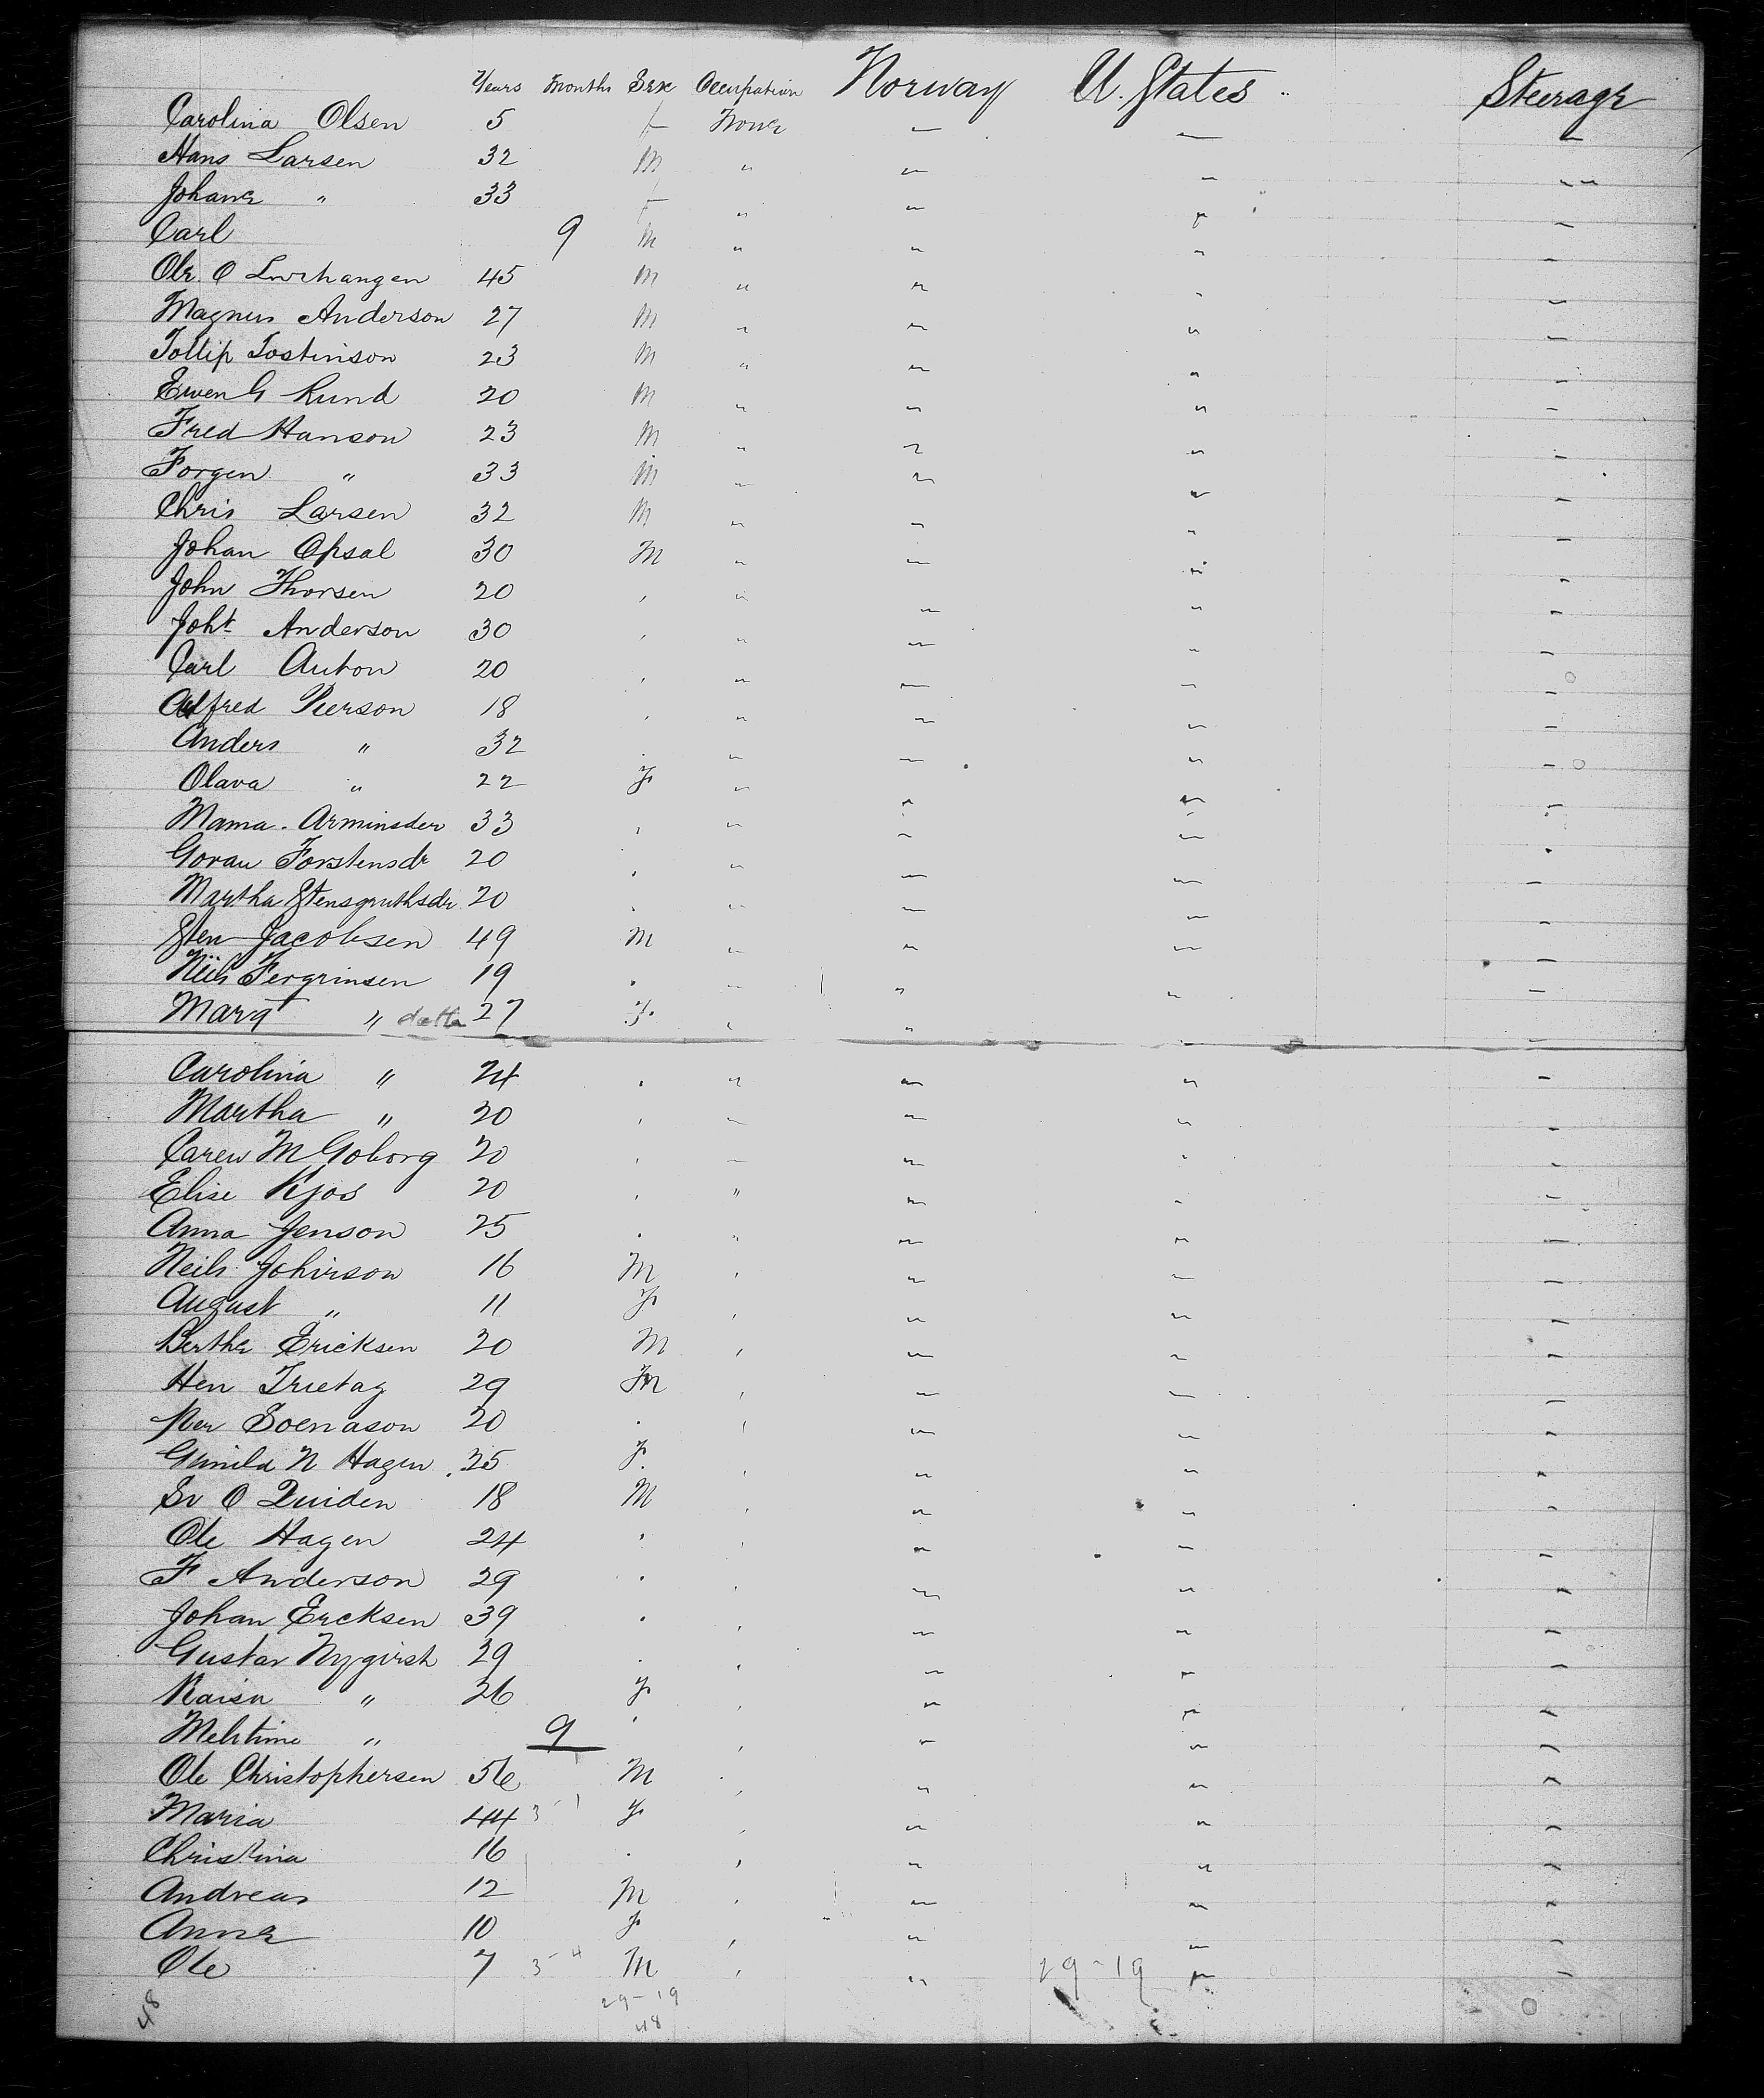 Years Months Sex Occupation Norway U. States Steerage
Carolina Olsen 5 f None
Hans Larsen 32 M "
Johane " 33 f "
Carl 9 M "
Ole. O 45 M "
Magnus Anderson 27 M "
Tollip Tostinson 23 M "
Even G Lund 20 M "
Fred Hanson 23 M "
Jorgen " 33 M "
Chris Larsen 32 M "
Johan Opsal 30 M "
John Thorsen 20 "
Joht Anderson 30 "
Carl Anton 20 "
Alfred Pierson 18 "
Anders " 32 "
Olava " 22 F "
Mama. Arminsder 33 "
Goran Torstensdr 20 "
Martha Stensgruthsdr 20 "
Sten Jacobsen 49 M "
Niels Fergrinsen 19 "
Marg " datter 27 F "
Carolina " 24 "
Martha " 20 "
Caren M Goborg 20 "
Elise Kjos 20 "
Anna Jenson 25 "
Neils Johinson 16 M "
August " 11 F "
Berthe Ericksen 20 M "
Hen Trietag 29 M "
Per Soenason 20 "
Gunild N Hagen 35 F "
Sv O Quiden 18 M "
Ole Hagen 24 "
F Anderson 29 "
Johan Ercksen 39 "
Gustav Nygirst 29 "
Kaisa " 26 F "
" 9 "
Ole Christophersen 56 M "
Maria 44 3 1 F "
Christina 16 "
Andreas 12 M "
Anne 10 F "
Ole 7 3 4 M " 29-19
29-19
48 48